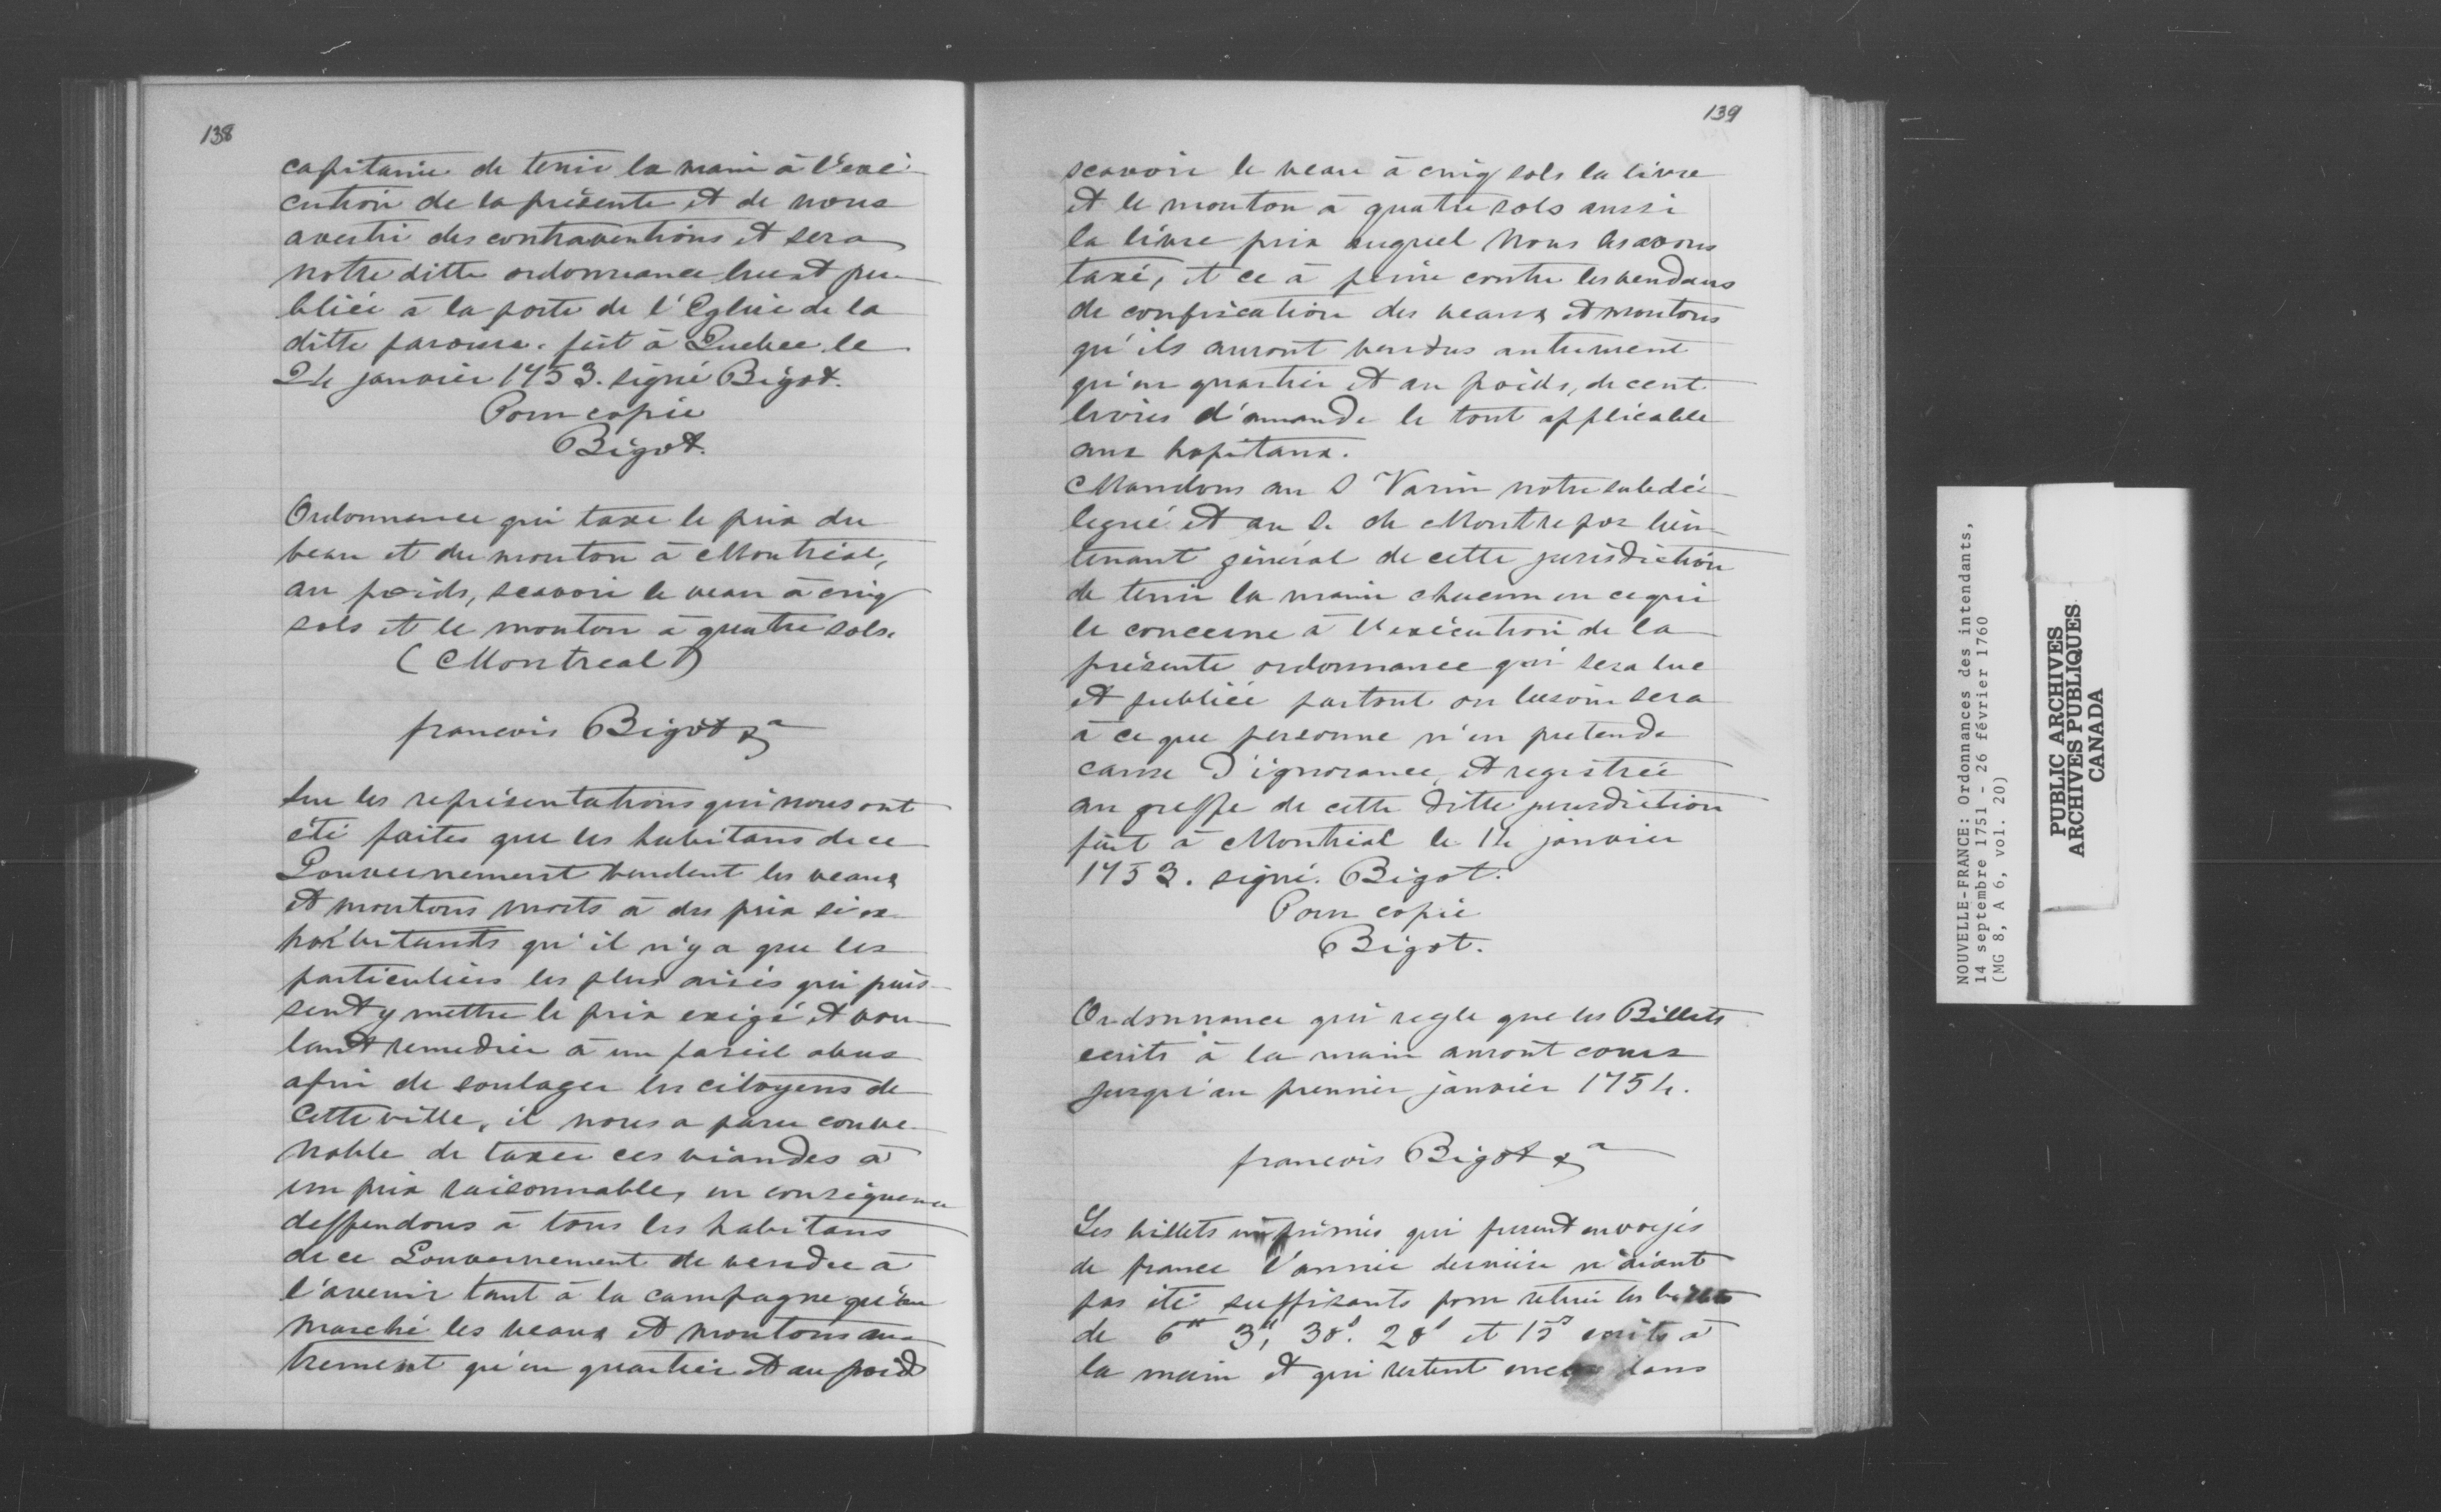 138
capitainie de tenir la main à l'exé-
cution de la présente et de nous
avertir des contraventions et sera
notre ditte ordonnance lue et pu-
bliée à la porte de l'Eglise de la
ditte paroisse. fait à Quebec le
24 janvier 1753. signé Bigot.
Pour copie
Bigot.
Ordonnance qui taxe le prix du
veau et du mouton à Montréal,
au poids, scavoir le veau à cinq
sols et le mouton à quatre sols.
(Montreal)
francois Bigot &a
Sur les représentations qui nous ont
été faites que les habitans de ce
Gouvernement vendent les veaux
et moutons morts à des prix si ex-
horbitants qu'il n'y a que les
particuliers les plus aisés qui puis-
sent y mettre le prix exigé et vou-
lant remedier à un pareil abus
afin de soulager les citoyens de
cette ville, il nous a paru conve-
nable de taxer ces viandes à
un prix raisonnable, en conséquence
deffendons à tous les habitans
de ce Gouvernement de vendre à
l'avenir tant à la campagne qu'au
marché les veaux et moutons au-
trement qu'en quartier et au poid
139
scavoir le veau à cinq sols la livre
et le mouton à quatre sols aussi
la livre prix auquel nous les avons
taxé, et ce à peine contre les vendans
de confiscation des veaux et moutons
qu'ils auront vendus autrement
qu'en quartier et au poids, de cent
livres d'amande le tout applicable
aux hopitaux.
Mandons au S Varin notre subdé-
legué et au S. de Montrepos lieu-
tenant général de cette jurisdiction
de tenir la main chacun en ce qui
le concerne à l'exécution de la
présente ordonnance qui sera lue
et publiée partout ou besoin sera
à ce que personne n'en pretende
cause d'ignorance, et registrée
au greffe de cette ditte jurisdiction
fait à Montréal le 14 janvier
1753. signé. Bigot.
Pour copie
Bigot.
Ordonnance qui regle que les Billets
ecrits à la main auront cours
jusqu'au premier janvier 1754.
francois Bigot &a
Les billets imprimés qui furent envoyés
de france l'année dernière n'aiant
pas été suffisants pour retirer les billets
de 6tt 3tt, 30s. 20s et 15s ecrits à
la main et qui restent encore dans
NOUVELLE-FRANCE: Ordonnances des intendants,
14 septembre 1751 - 26 février 1760
(MG 8, A 6, vol. 20)
PUBLIC ARCHIVES
ARCHIVES PUBLIQUES
CANADA